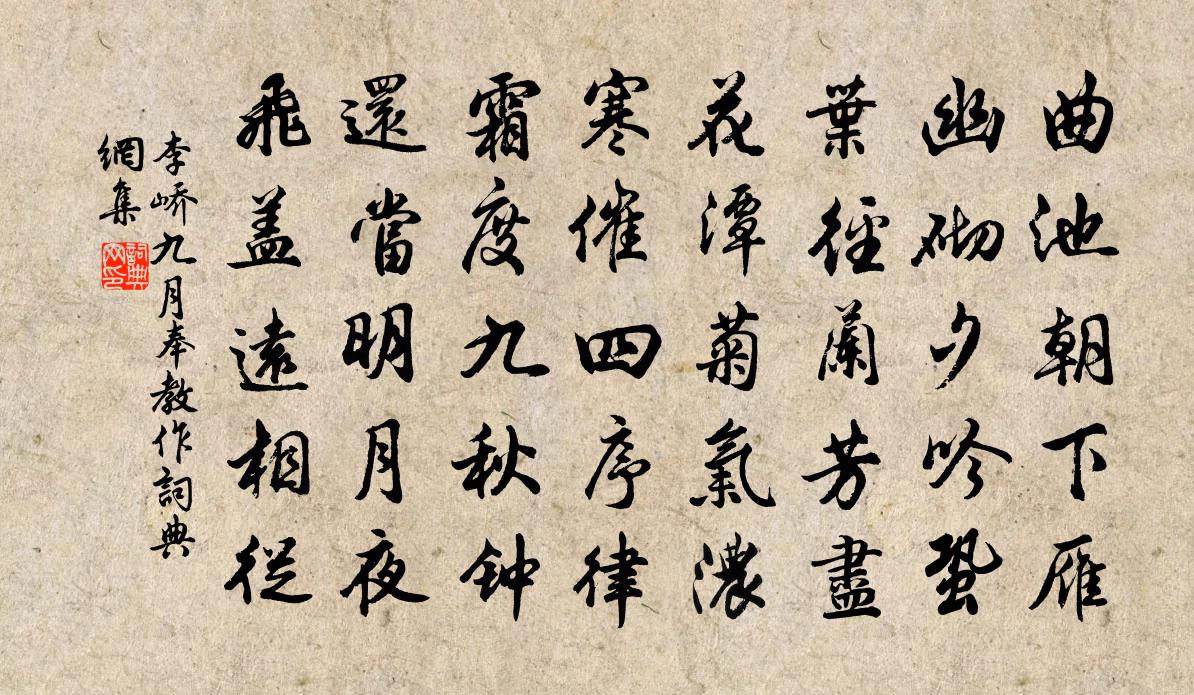 曲池朝下雁
幽砌夕吟蛩
葉徑蘭芳盡
花潭菊氣濃
寒催四序律
霜度九秋钟
還當明月夜
飛盖遠相從
李嶠九月奉教作詞典
網集
詞典
网印